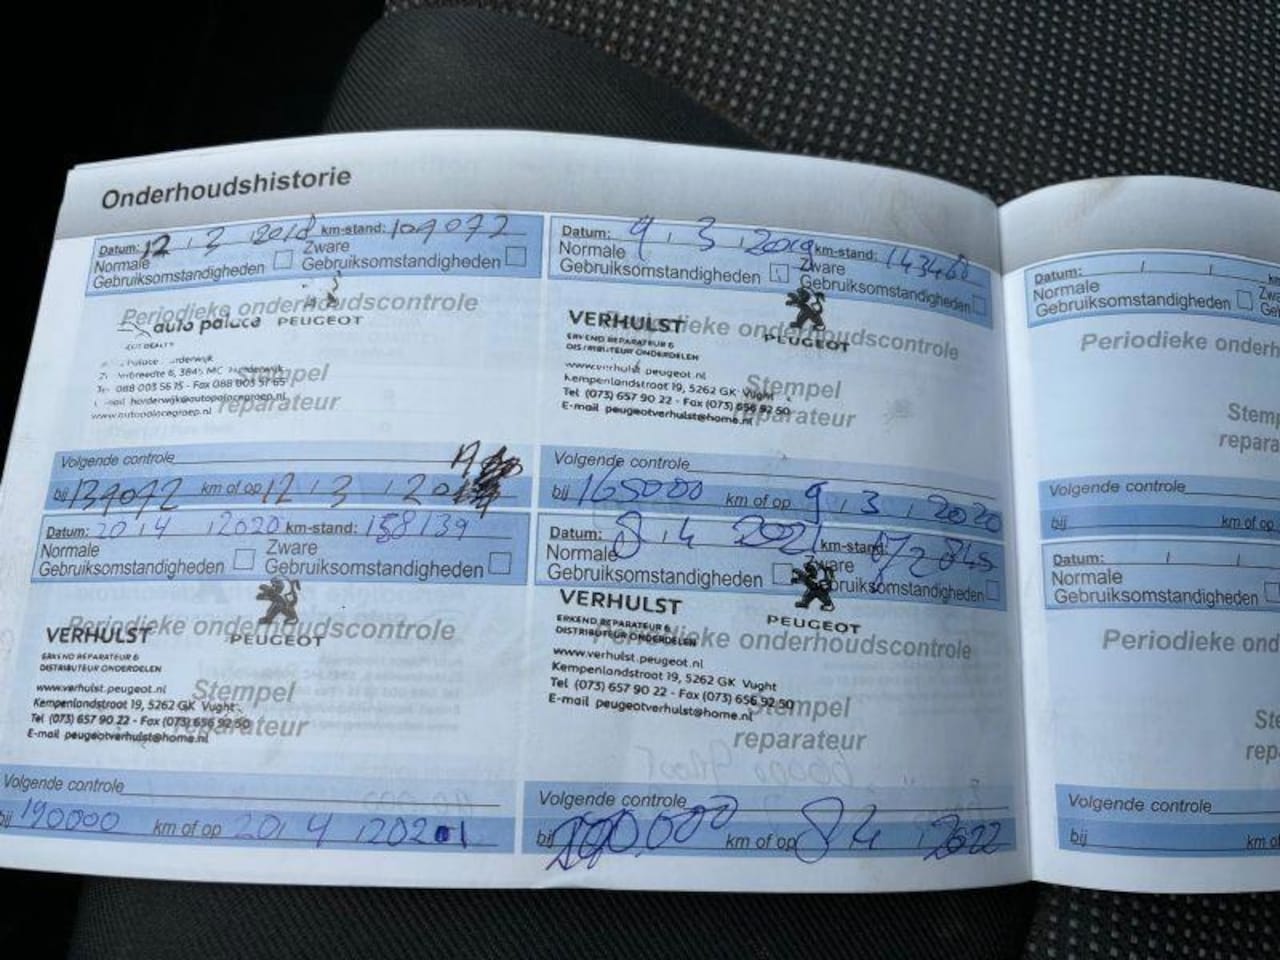 Onderhoudshistorie
Datum: 12 3 2018 km-stand: 109072
Normale Gebruiksomstandigheden Zware Gebruiksomstandigheden
Periodieke onderhoudscontrole
auto palace PEUGEOT
Stempel
Tel 088 003 56 15 - Fax 088 003 57 65
harderwijk@autopalacegroep.nl
reparateur
www.autopalacegroep.nl
Volgende controle
bij 139072 km of op 12 3
Datum: 9 3 2019 km-stand: 143468
Normale Gebruiksomstandigheden Zware Gebruiksomstandigheden
Periodieke onderhoudscontrole
VERHULST PEUGEOT
ERKEND REPARATEUR &
DISTRIBUTEUR ONDERDELEN
www.verhulst.peugeot.nl
Stempel
Kempenlandstraat 19, 5262 GK Vught
Tel (073) 657 90 22 - Fax (073) 656 92 50
reparateur
E-mail peugeotverhulst@home.nl
Volgende controle
bij 165000 km of op 9 3 2020
Datum: 20 4 2020 km-stand: 158139
Normale Gebruiksomstandigheden Zware Gebruiksomstandigheden
Periodieke onderhoudscontrole
VERHULST PEUGEOT
ERKEND REPARATEUR &
DISTRIBUTEUR ONDERDELEN
www.verhulst.peugeot.nl
Stempel
Kempenlandstraat 19, 5262 GK Vught
Tel (073) 657 90 22 - Fax (073) 656 92 50
reparateur
E-mail peugeotverhulst@home.nl
Volgende controle
bij 190000 km of op 20 4 2021
Datum: 8 4 2021 km-stand:
Normale Gebruiksomstandigheden Zware Gebruiksomstandigheden
Periodieke onderhoudscontrole
VERHULST PEUGEOT
ERKEND REPARATEUR &
DISTRIBUTEUR ONDERDELEN
www.verhulst.peugeot.nl
Kempenlandstraat 19, 5262 GK Vught
Tel (073) 657 90 22 - Fax (073) 656 92 50
Stempel
E-mail peugeotverhulst@home.nl
reparateur
Volgende controle
bij km of op 8 4 2022
Datum: / /
Normale
Gebruiksomstandigheden
Periodieke
Volgende controle
bij km of op
Datum: / /
Normale
Gebruiksomstandigheden
Periodieke
Volgende controle
bij